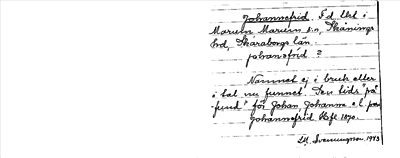 Johannefrid. F.d. lht i
Marum Marum sn, Skånings
hd, Skaraborgs län.
johanəfrid ?
Namnet ej i bruk eller
i tal nu funnet. Den tids på-
"fund" för Johan, Johanna o.l. 
Johannefrid Hfl. 1870.
Svenningson. 1983